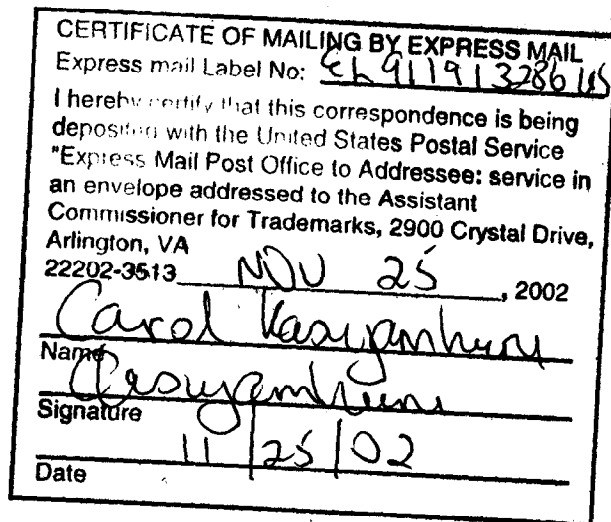 CERTIFICATE OF MAILING BY EXPRESS MAIL
Express mail Label No: EL911913286US
I hereby certify that this correspondence is being
deposited with the United States Postal Service
"Express Mail Post Office to Addressee: service in
an envelope addressed to the Assistant
Commissioner for Trademarks, 2900 Crystal Drive,
Arlington, VA
22202-3513 NOV 25, 2002
Carol
Name
Signature
11/25/02
Date